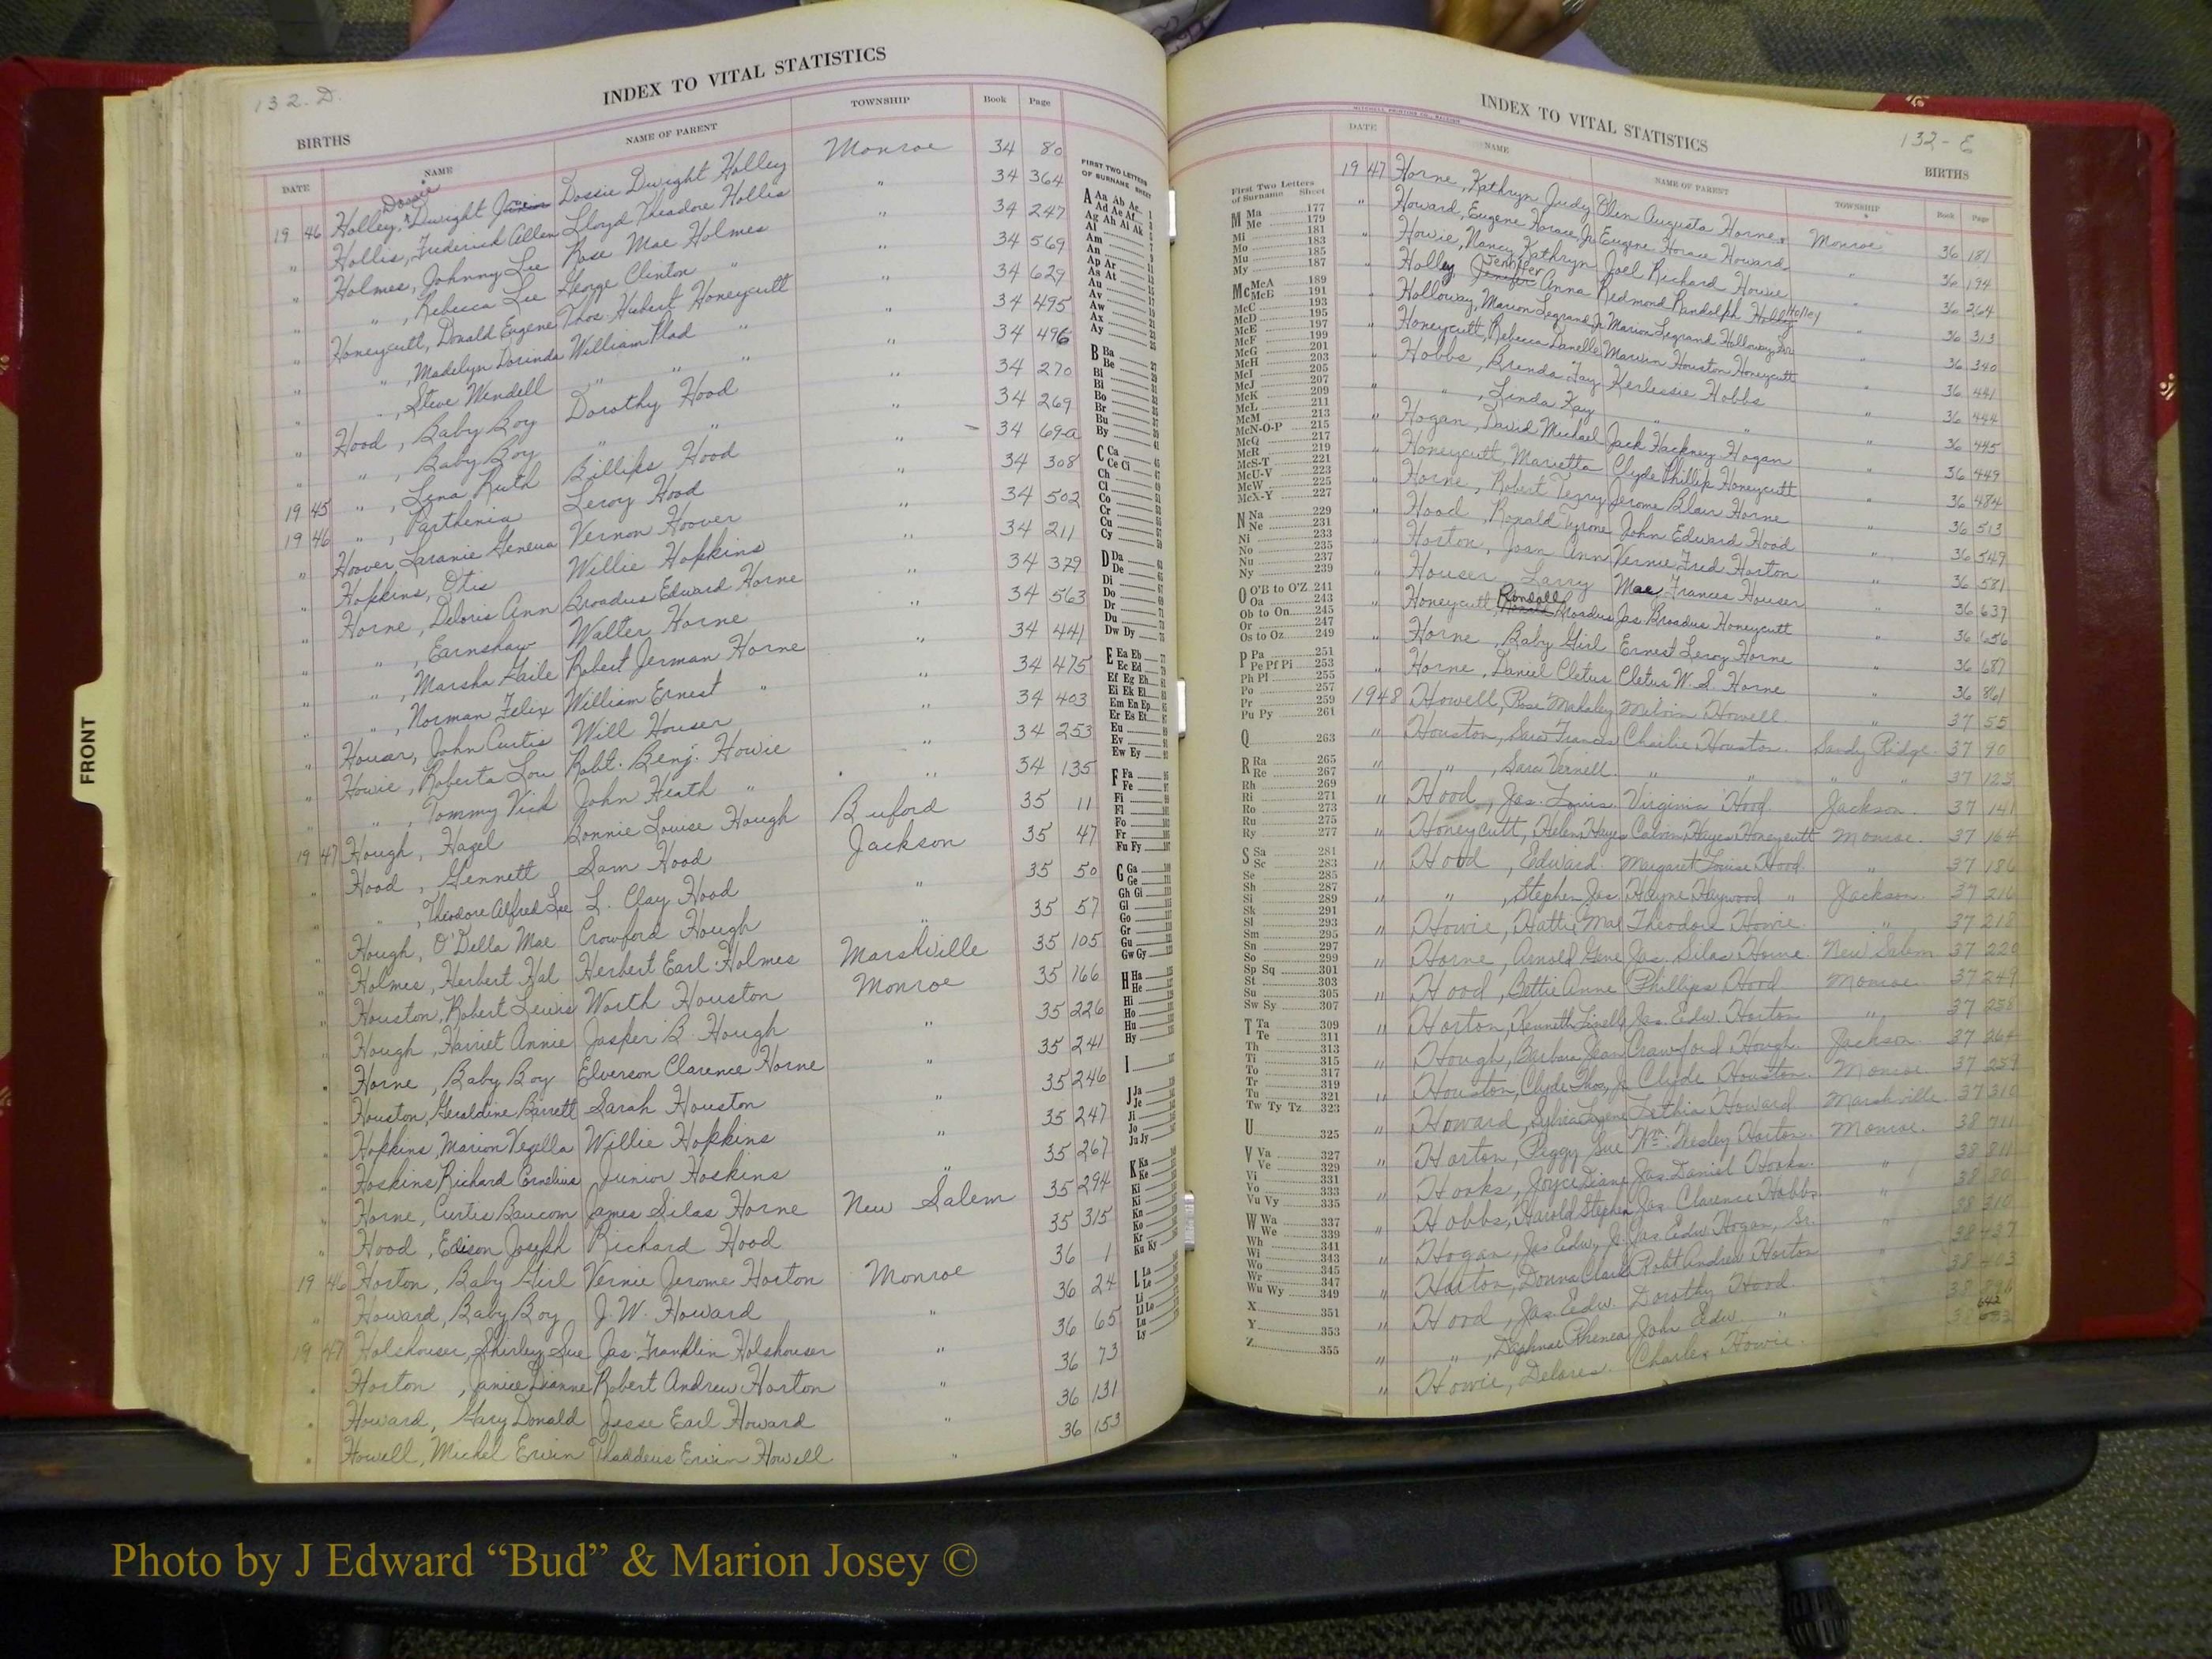 132-D.
INDEX TO VITAL STATISTICS
BIRTHS
DATE NAME NAME OF PARENT TOWNSHIP Book Page
19 46 Holley, Dossie Dwight Dossie Dwight Holley Monroe 34 80
" Hollis, Frederick Allen Lloyd Theadore Hollis " 34 364
" Holmes, Johnny Lee Rose Mae Holmes " 34 247
" " , Rebecca Lee George Clinton " " 34 569
" Honeycutt, Donald Eugene Thos. Hubert Honeycutt " 34 629
" " , Madelyn Dorinda William Plad " " 34 495
" " , Steve Wendell " " " " 34 496
" Hood, Baby Boy Dorothy Hood " 34 270
" " , Baby Boy " " " 34 269
19 45 " , Lena Ruth Billips Hood " 34 69-a
19 46 " , Parthenia Leroy Hood " 34 308
" Hoover, Laranie Geneva Vernon Hoover " 34 502
" Hopkins, Otis Willie Hopkins " 34 211
" Horne, Deloris Ann Broadus Edward Horne " 34 379
" " , Earnshaw Walter Horne " 34 563
" " , Marsha Gaile Robert Jerman Horne " 34 441
" " , Norman Felix William Ernest " " 34 475
" Houser, John Curtis Will Houser " 34 403
" Howie, Roberta Lou Robt. Benj. Howie " 34 253
" " , Tommy Vick John Heath " " 34 135
19 47 Hough, Hazel Bonnie Louise Hough Buford 35 11
" Hood, Gennett Sam Hood Jackson 35 47
" " , Theodore Alfred Lee L. Clay Hood " 35 50
" Hough, O'Della Mae Crowford Hough " 35 57
" Holmes, Herbert Hal Herbert Earl Holmes Marshville 35 105
" Houston, Robert Lewis Worth Houston Monroe 35 166
" Hough, Harriet Annie Jasper B. Hough " 35 226
" Horne, Baby Boy Elverson Clarence Horne " 35 241
" Houston, Geraldine Barrett Sarah Houston " 35 246
" Hopkins, Marion Vezella Willie Hopkins " 35 247
" Hoskins Richard Cornelius Junior Hoskins " 35 267
" Horne, Curtis Baucom James Silas Horne New Salem 35 294
" Hood, Edison Joseph Richard Hood 35 315
19 46 Horton, Baby Girl Vernie Jerome Horton Monroe 36 1
" Howard, Baby Boy J. W. Howard " 36 24
19 47 Holshouser, Shirley Sue Jas. Franklin Holshouser " 36 65
" Horton, Janice Dianne Robert Andrew Horton " 36 73
" Howard, Gary Donald Jesse Earl Howard " 36 131
" Howell, Michel Erwin Thaddeus Erwin Howell " 36 153
FIRST TWO LETTERS
OF SURNAME SHEET
A Aa Ab Ac
Ad Ae Af
Ag Ah Ai Ak
Al
Am
An
Ap Ar
As At
Au
Av
Aw
Ax
Ay
B Ba
Be
Bi
Bl
Bo
Br
Bu
By
C Ca
Ce Ci
Ch
Cl
Co
Cr
Cu
Cy
D Da
De
Di
Do
Dr
Du
Dw Dy
E Ea Eb
Ec Ed
Ef Eg Eh
Ei Ek El
Em En Ep
Er Es Et
Eu
Ev
Ew Ey
F Fa
Fe
Fi
Fl
Fo
Fr
Fu Fy
G Ga
Ge
Gh Gi
Gl
Go
Gr
Gu
Gw Gy
H Ha
He
Hi
Ho
Hu
Hy
I
J Ja
Je
Ji
Jo
Ju Jy
K Ka
Ke
Ki
Kl
Kn
Ko
Kr
Ku Ky
L La
Le
Li
Ll Lo
Lu
Ly
FRONT
INDEX TO VITAL STATISTICS
132-E
BIRTHS
DATE NAME NAME OF PARENT TOWNSHIP Book Page
First Two Letters
of Surname Sheet
M Ma 177
Me 179
Mi 181
Mo 183
Mu 185
My 187
Mc McA 189
McB 191
McC 193
McD 195
McE 197
McF 199
McG 201
McH 203
McI 205
McJ 207
McK 209
McL 211
McM 213
McN-O-P 215
McQ 217
McR 219
McS-T 221
McU-V 223
McW 225
McX-Y 227
N Na 229
Ne 231
Ni 233
No 235
Nu 237
Ny 239
O O'B to O'Z 241
Oa 243
Ob to On 245
Or 247
Os to Oz 249
P Pa 251
Pe Pf Pi 253
Ph Pl 255
Po 257
Pr 259
Pu Py 261
Q 263
R Ra 265
Re 267
Rh 269
Ri 271
Ro 273
Ru 275
Ry 277
S Sa 281
Sc 283
Se 285
Sh 287
Si 289
Sk 291
Sl 293
Sm 295
Sn 297
So 299
Sp Sq 301
St 303
Su 305
Sw Sy 307
T Ta 309
Te 311
Th 313
Ti 315
To 317
Tr 319
Tu 321
Tw Ty Tz 323
U 325
V Va 327
Ve 329
Vi 331
Vo 333
Vu Vy 335
W Wa 337
We 339
Wh 341
Wi 343
Wo 345
Wr 347
Wu Wy 349
X 351
Y 353
Z 355
19 47 Horne, Kathryn Judy Olen Augusta Horne Monroe 36 181
" Howard, Eugene Horace Jr Eugene Horace Howard " 36 194
" Howie, Nancy Kathryn Joel Richard Howie " 36 264
" Holley, Jennifer Anna Redmond Randolph Holley " 36 313
" Holloway, Marion Legrand Jr Marion Legrand Holloway Sr " 36 340
" Honeycutt, Rebecca Danelle Marvin Houston Honeycutt " 36 441
" Hobbs, Brenda Fay Kerlessie Hobbs " 36 444
" " , Linda Kay " " " 36 445
" Hogan, David Michael Jack Hackney Hogan " 36 449
" Honeycutt, Marietta Clyde Phillip Honeycutt " 36 484
" Horne, Robert Terry Jerome Blair Horne " 36 513
" Hood, Ronald Tyrone John Edward Hood " 36 549
" Horton, Joan Ann Vernie Fred Horton " 36 581
" Houser, Larry Mae Frances Houser " 36 639
" Honeycutt, Rondall Broadus Jas Broadus Honeycutt " 36 656
" Horne, Baby Girl Ernest Leroy Horne " 36 687
" Horne, Daniel Cletus Cletus W. S. Horne " 36 861
1948 Howell, Rose Mahaley Melvin Howell " 37 55
" Houston, Sara Francis Charlie Houston Sandy Ridge 37 90
" " , Sara Vernell " " " " 37 123
" Hood, Jas. Louis Virginia Hood Jackson 37 141
" Honeycutt, Helen Hayes Calvin Hayes Honeycutt Monroe 37 164
" Hood, Edward Margaret Louise Hood " 37 186
" " , Stephen Jas. Hayne Haywood " Jackson 37 216
" Howie, Hattie Mae Theodore Howie " 37 218
" Horne, Arnold Gene Jas. Silas Horne New Salem 37 220
" Hood, Bettie Anne Phillips Hood Monroe 37 249
" Horton, Kenneth Jas. Edw. Horton " 37 258
" Hough, Barbara Jean Crawford Hough Jackson 37 264
" Houston, Clyde Thos, Jr Clyde Houston Monroe 37 259
" Howard, Sylvia Lethia Howard Marshville 37 310
" Horton, Peggy Sue Wm. Wesley Horton Monroe 38 711
" Hooks, Joyce Diane Jas Daniel Hooks " 38 811
" Hobbs, Harold Stephen Jas. Clarence Hobbs " 38 80
" Hogan, Jas. Edw, Jr. Jas Edw. Hogan, Sr. " 38 310
" Horton, Donna Robt Andrew Horton " 38 427
" Hood, Jas. Edw. Dorothy Hood 38 403
" " , Daphnae Phenea John Edw. " 38
" Howie, Delores Charles Howie
Photo by J Edward “Bud” & Marion Josey ©